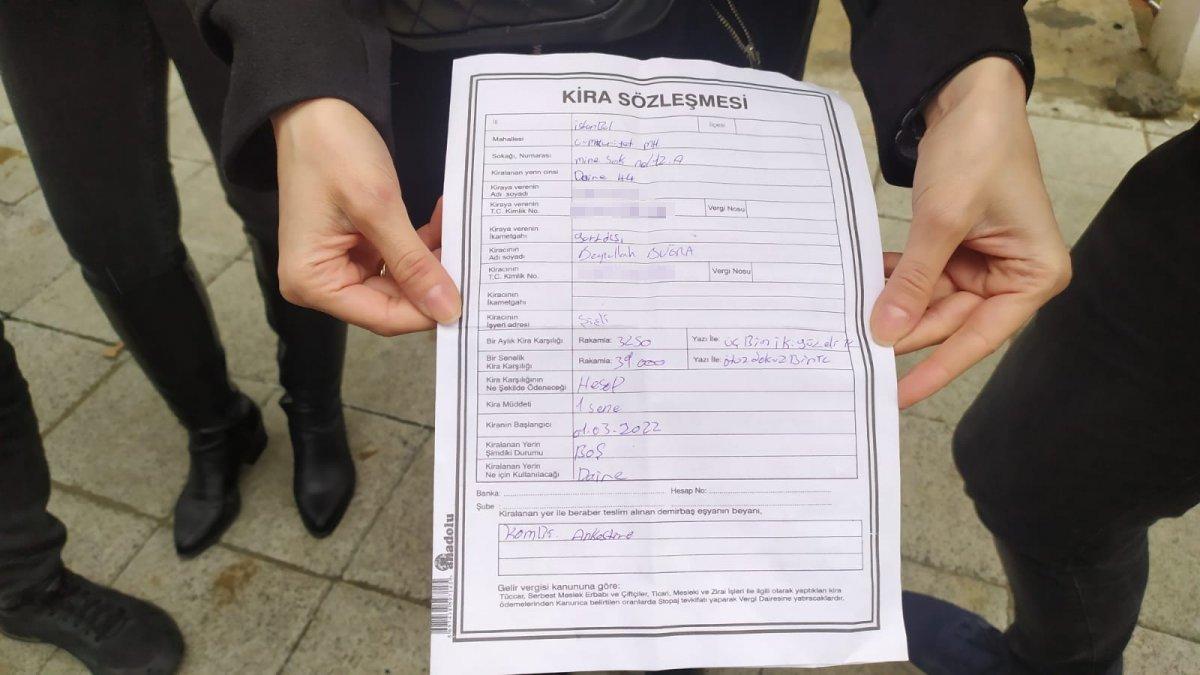 KİRA SÖZLEŞMESİ
İli istanbul İlçesi
Mahallesi MH
Sokağı, Numarası mine Sok no/12 A
Kiralanan yerin cinsi Daire
Kiraya verenin Adı soyadı
Kiraya verenin T.C. Kimlik No. Vergi Nosu
Kiraya verenin İkametgahı yurtdışı
Kiracının Adı soyadı Beytullah BUĞRA
Kiracının T.C. Kimlik No. Vergi Nosu
Kiracının İkametgahı
Kiracının İşyeri adresi Şişli
Bir Aylık Kira Karşılığı Rakamla: 3250 Yazı İle: üç Bin
Bir Senelik Kira Karşılığı Rakamla: 39000 Yazı İle: otuzdokuz BinTL
Kira Karşılığının Ne Şekilde Ödeneceği Hesap
Kira Müddeti 1 sene
Kiranın Başlangıcı 01.03.2022
Kiralanan Yerin Şimdiki Durumu BOŞ
Kiralanan Yerin Ne için Kullanılacağı Daire
Banka: Hesap No:
Şube :
Kiralanan yer ile beraber teslim alınan demirbaş eşyanın beyanı,
Kombi. Ankastre
Gelir vergisi kanununa göre:
Tüccar, Serbest Meslek Erbabı ve Çiftçiler, Ticari, Mesleki ve Zirai İşleri ile ilgili olarak yaptıkları kira
ödemelerinden Kanunca belirtilen oranlarda Stopaj tevkifatı yaparak Vergi Dairesine yatıracaklardır.
anadolu